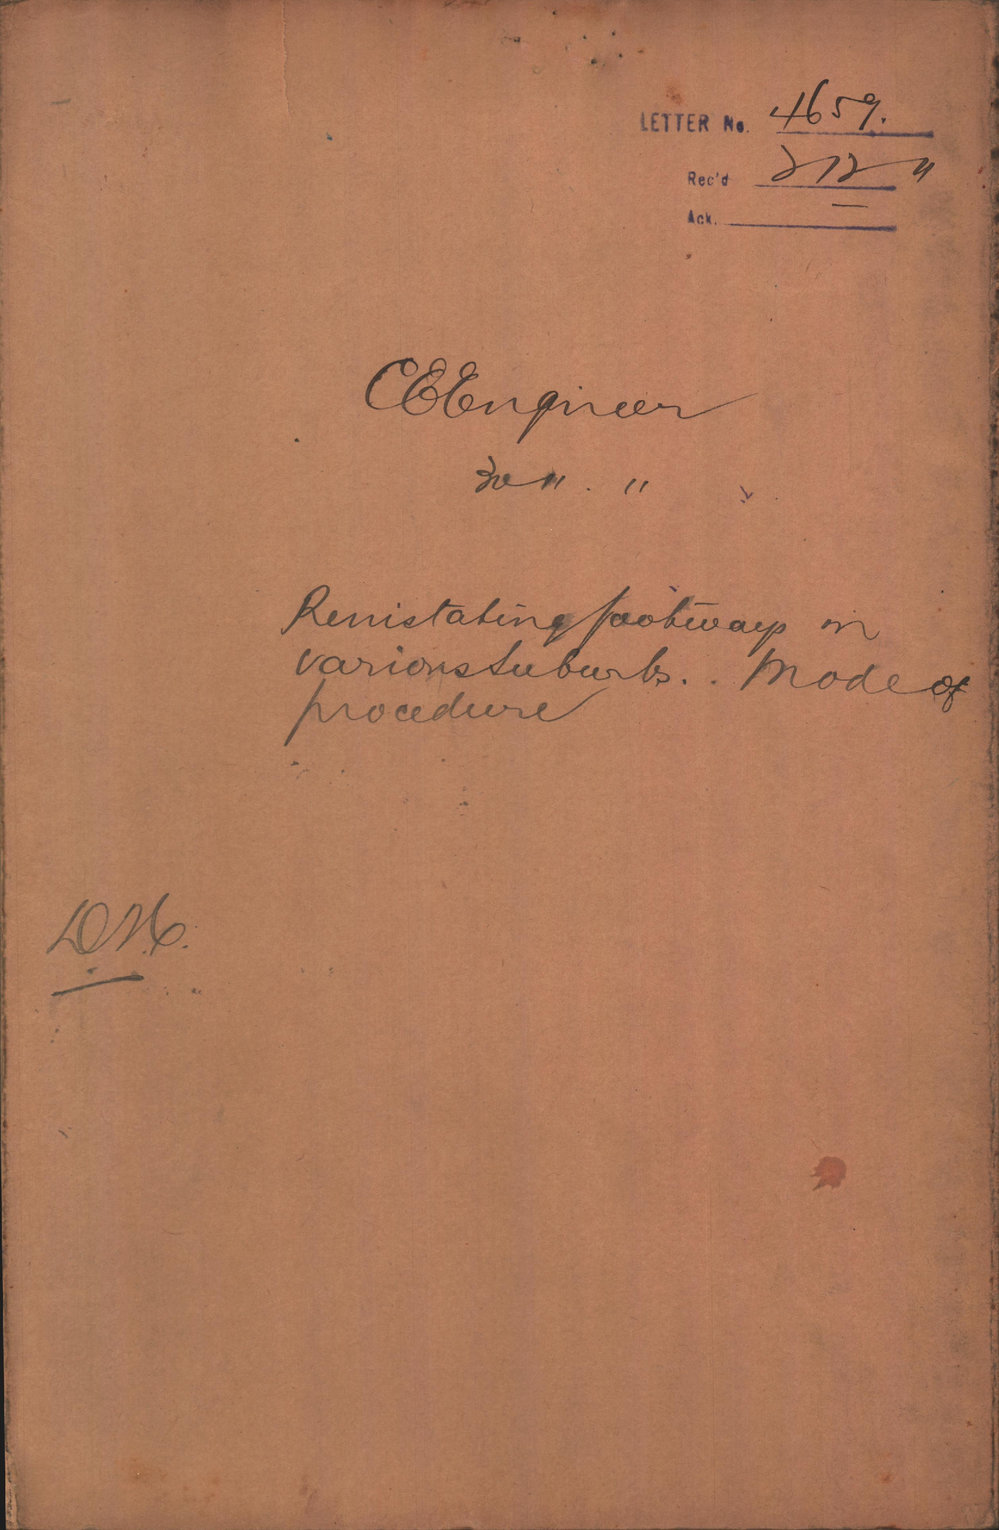 LETTER No. 4659.
Rec'd 2 12 11
Ack.
CEEngineer
30 11 . 11
Reinstating footways in
various suburbs. . Mode of
procedure